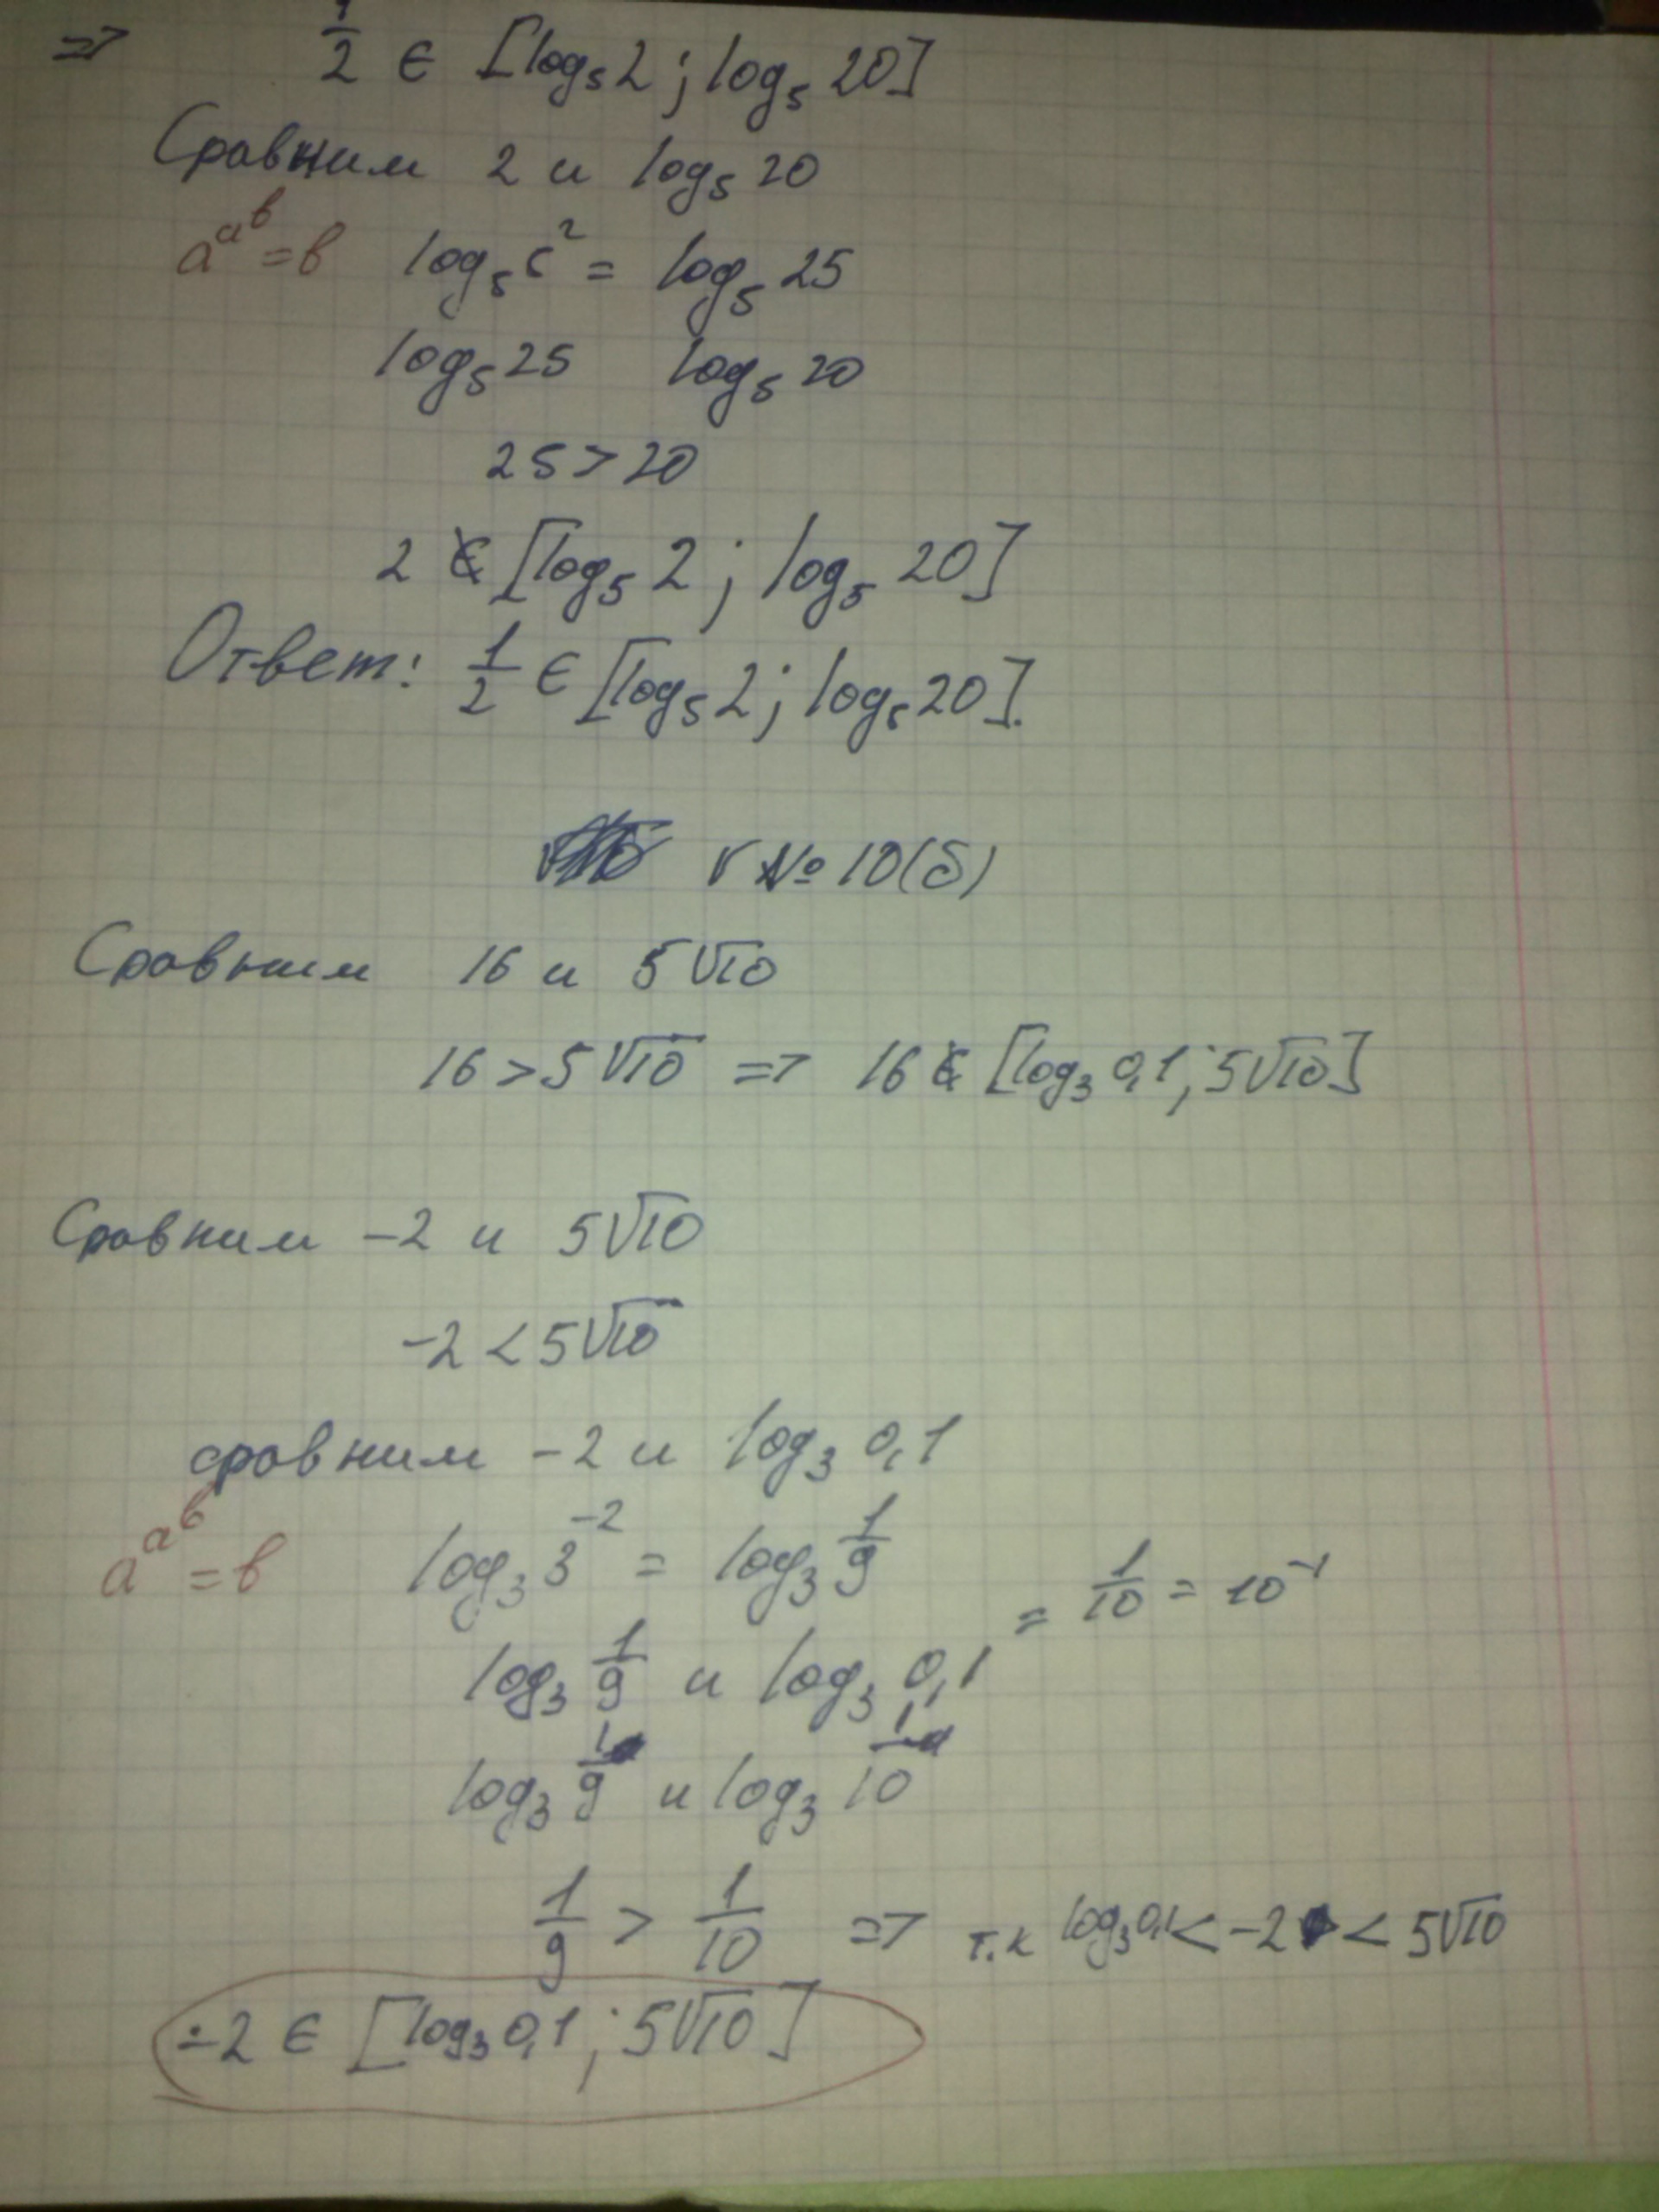 => 1/2 ∈ [log₅ 2 ; log₅ 20]
Сравним 2 и log₅ 20
a^a^b = b log₅ 5² = log₅ 25
log₅ 25 log₅ 20
25 > 20
2 ∉ [log₅ 2 ; log₅ 20]
Ответ: 1/2 ∈ [log₅ 2 ; log₅ 20].
√ № 10(б)
Сравним 16 и 5√10
16 > 5√10 => 16 ∉ [log₃ 0,1 ; 5√10]
Сравним -2 и 5√10
-2 < 5√10
сравним -2 и log₃ 0,1
a^a^b = b log₃ 3⁻² = log₃ 1/9
log₃ 1/9 и log₃ 0,1 = 1/10 = 10⁻¹
log₃ 1/9 и log₃ 1/10
1/9 > 1/10 => т.к log₃ 0,1 < -2 < 5√10
-2 ∈ [log₃ 0,1 ; 5√10]